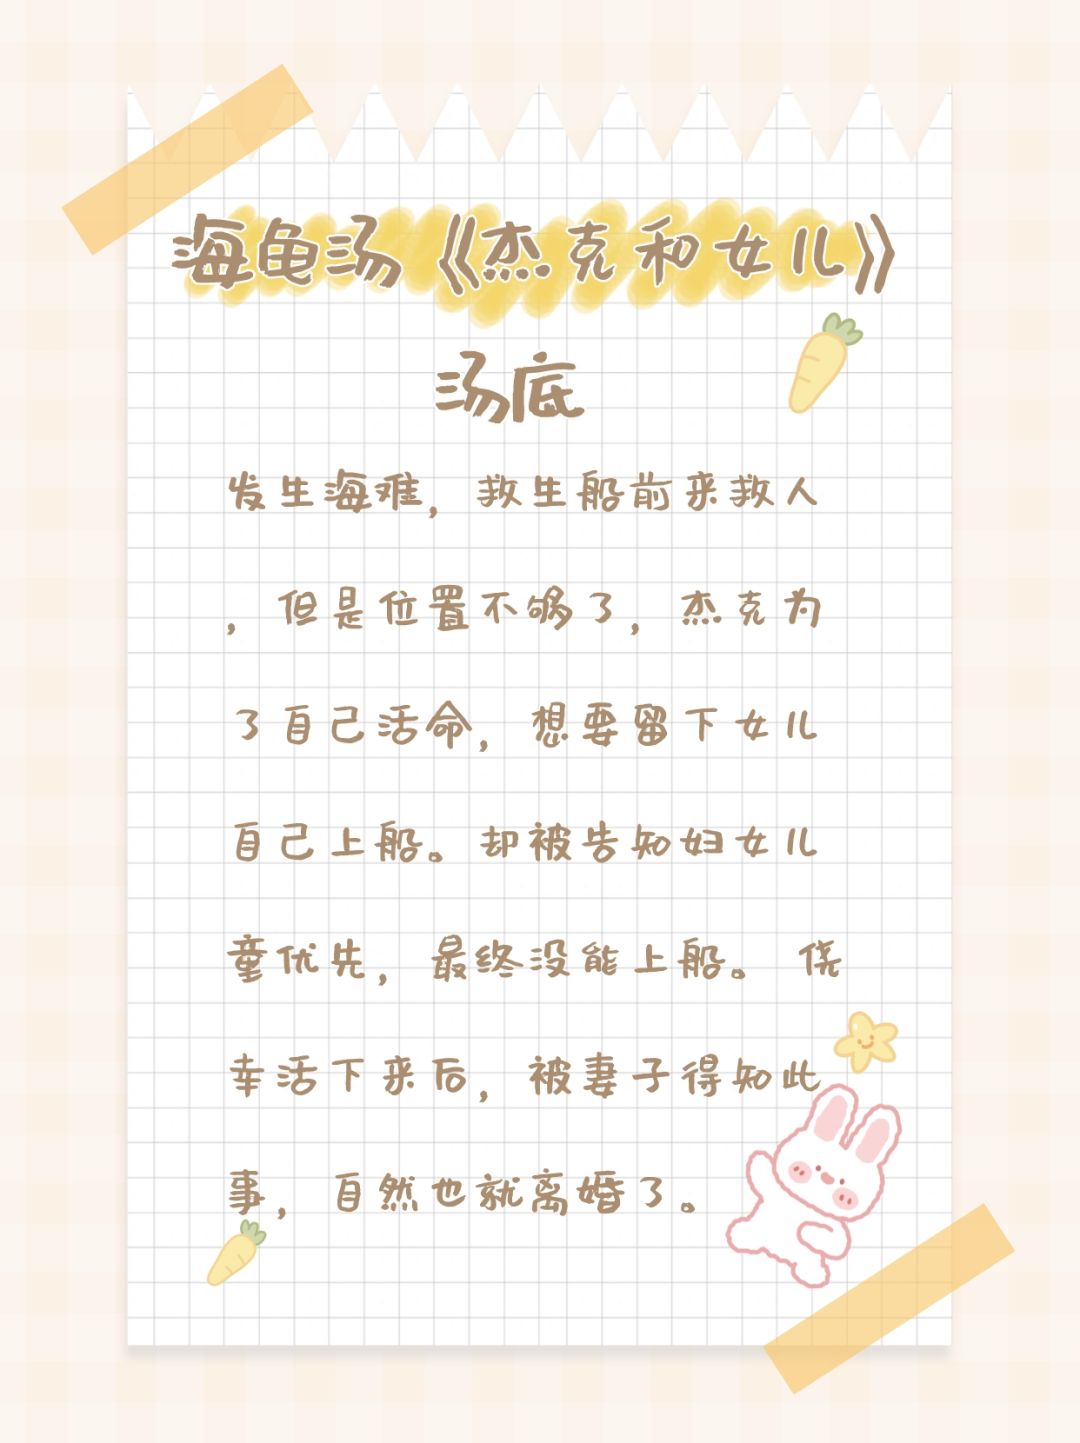 海龟汤《杰克和女儿》
汤底
发生海难，救生船前来救人
，但是位置不够了，杰克为
了自己活命，想要留下女儿
自己上船。却被告知妇女儿
童优先，最终没能上船。 侥
幸活下来后，被妻子得知此
事，自然也就离婚了。